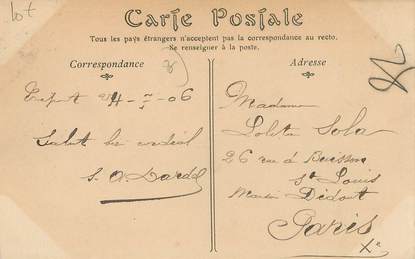 lot
Carte Postale
Tous les pays étrangers n'acceptent pas la correspondance au recto.
Se renseigner à la poste.
Correspondance
Adresse
06
Salut
Madame
Lolita Sola
26 rue du Buisson
St Louis
Maison Didout
Paris
Xe